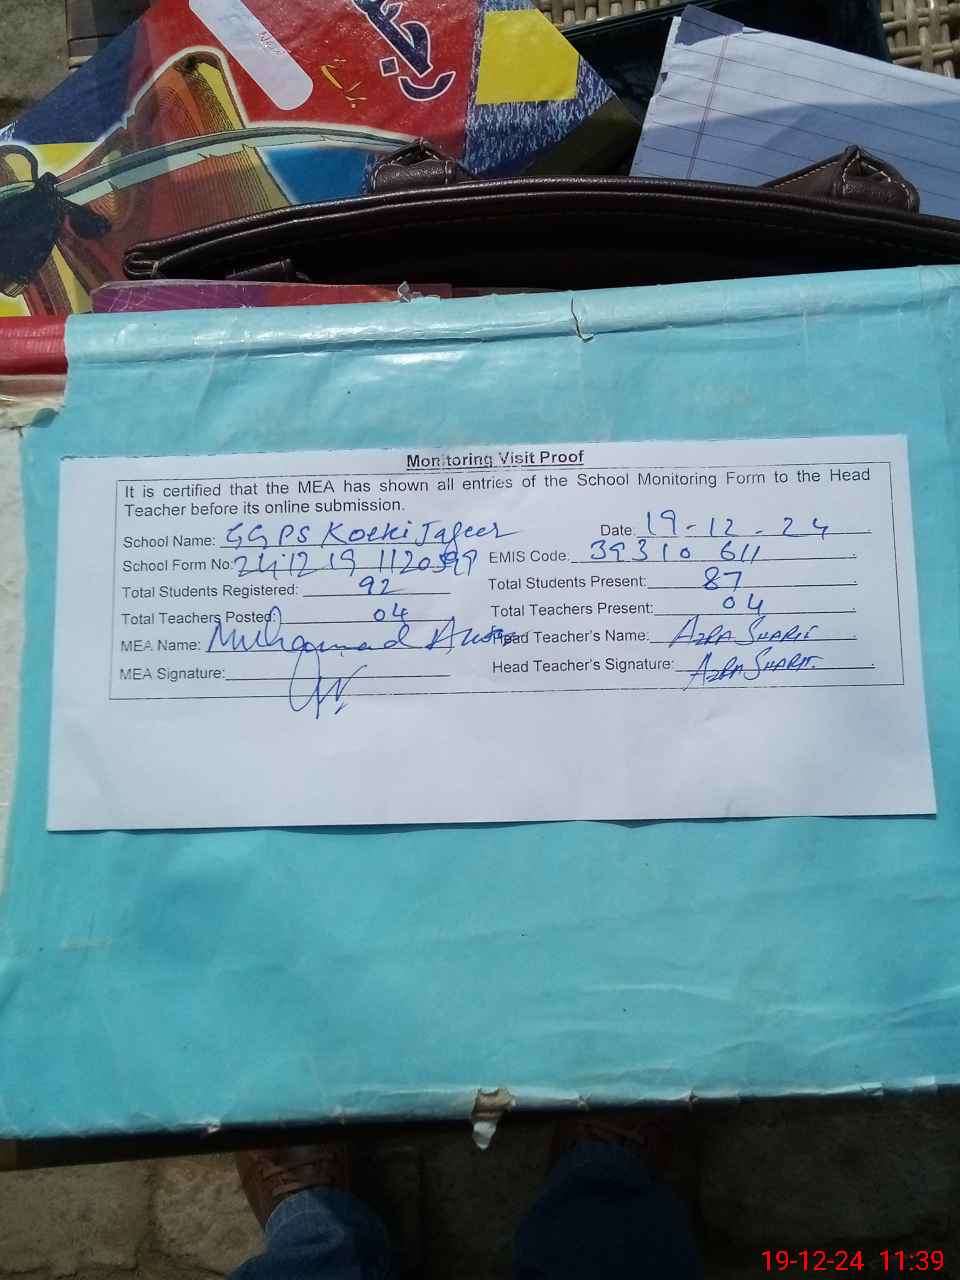 برائے
Monitoring Visit Proof
It is certified that the MEA has shown all entries of the School Monitoring Form to the Head
Teacher before its online submission.
School Name: GGPS Kotki Jafeer Date: 19-12-24
School Form No: EMIS Code: 39310 611
Total Students Registered: 92 Total Students Present: 87
Total Teachers Posted: 04 Total Teachers Present: 04
MEA Name: Muhammad Head Teacher's Name: AZRA SHARIF
MEA Signature: Head Teacher's Signature: AZRA SHARIF
19-12-24 11:39